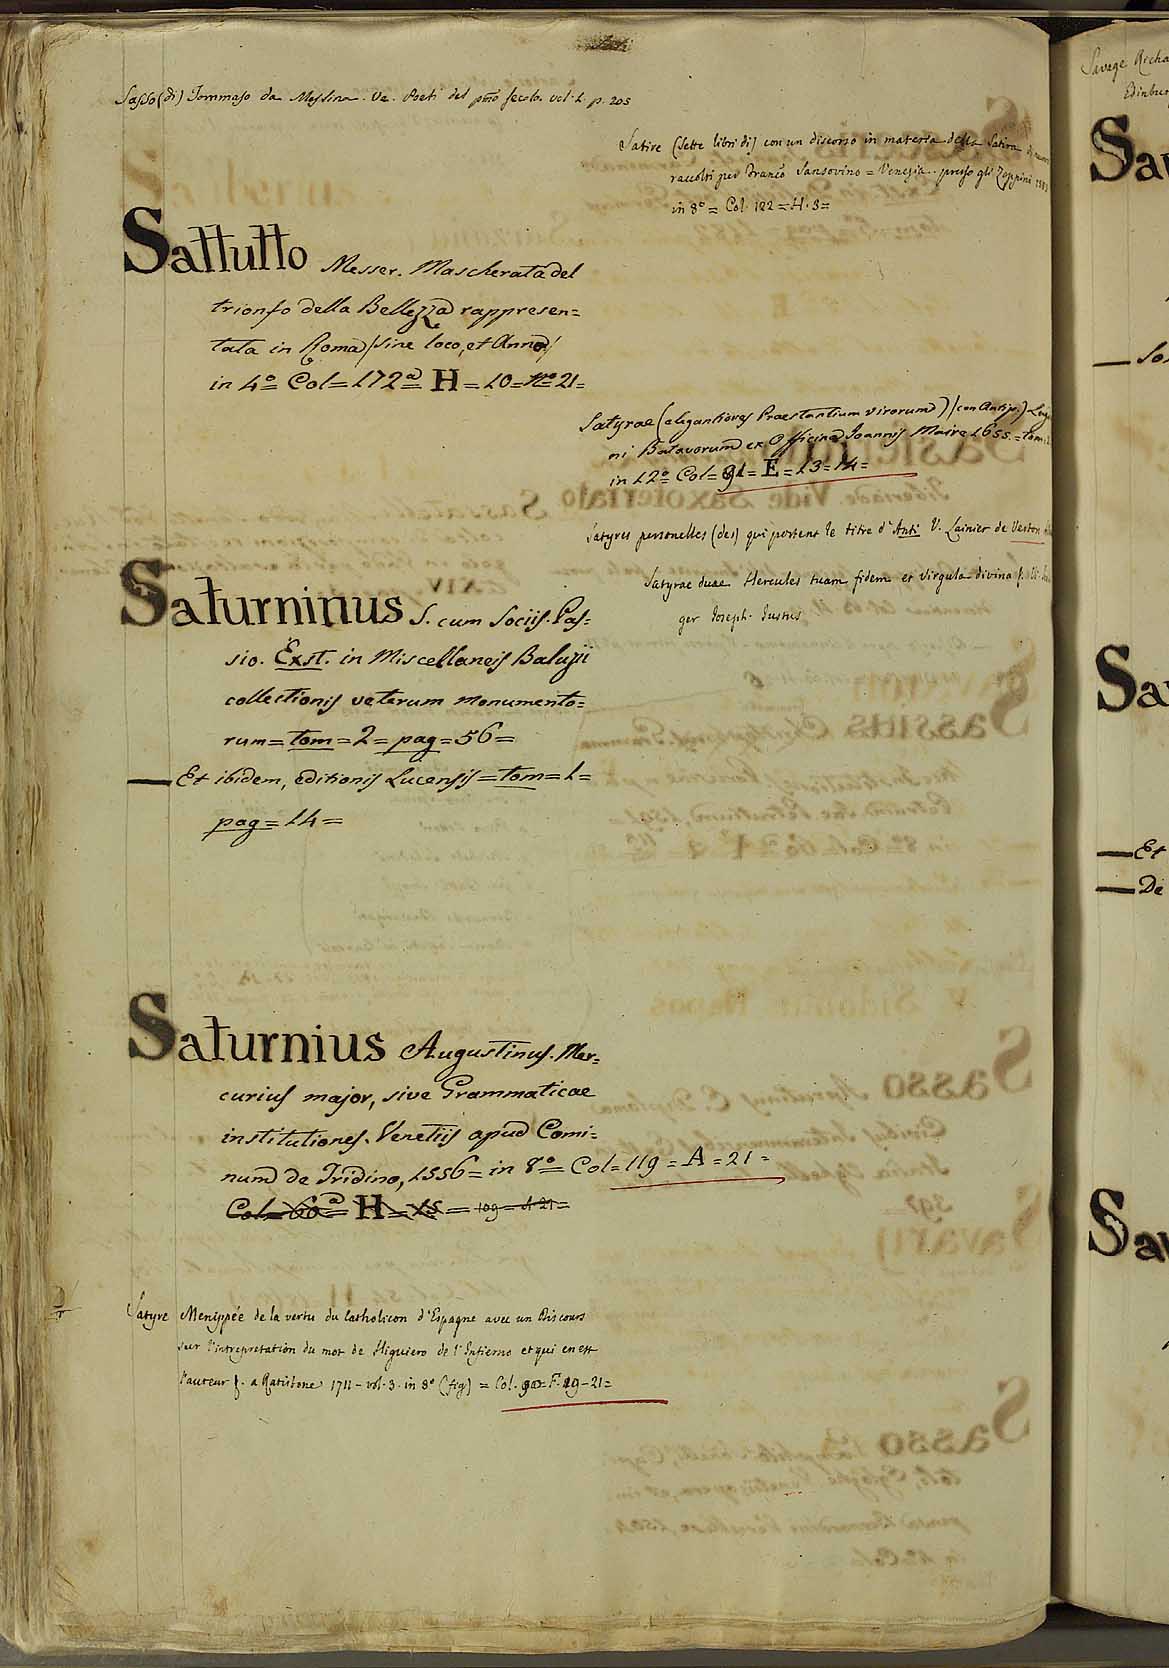 Sasso (di) Tommaso da Messina. Ve. Poeti del p̃mo secolo. vol. 1. p. 205
Sattutto Messer. Mascherata del
trionfo della Bellezza rappresen=
tata in Roma (sine loco, et Anno)
in 4º Col=172ª H=10=Nº 21=
Saturninus S. cum Sociis. Pas=
sio. Exst. in Miscellaneis Baluzii
collectionis veterum monumento=
rum=tom=2=pag=56=
— Et ibidem, editionis Lucensis=tom=1=
pag=14=
Saturnius Augustinus. Mer=
curius major, sive Grammaticae
institutiones. Venetiis apud Comi=
num de Tridino, 1556=in 8º= Col=119=A=21=
Col=60ª H=15=109=A 21=
Satyre Menippée de la vertu du Catholicon d'Espagne avec un Discours
sur l'intrepretation du mot de Higuiero de l'Infierno et qui en est
l'auteur. a Ratisbone 1711-vol. 3. in 8º (fig) = Col. 90=F. 19-21=
Satire (Sette libri di) con un discorso in materia della Satira
raccolti per Franco Sansovino=Venezia. presso gli Zoppini 1583
in 8º= Col. 122=H. 3=
Satyrae (elegantiores Praestantium virorum) (con Antip.)
ni Batavorum ex Officina Joannis Maire 1655.=tom.
in 12º Col=91=E=13=14=
Satyres personelles (des) qui portent le titre d'Anti V. Lainier de Verton
Satyrae duae Hercules tuam fidem et virgula divina
ger Joseph. Justus
Savage Richa
Edinbur
Sav
Sav
— Et
— De
Sav